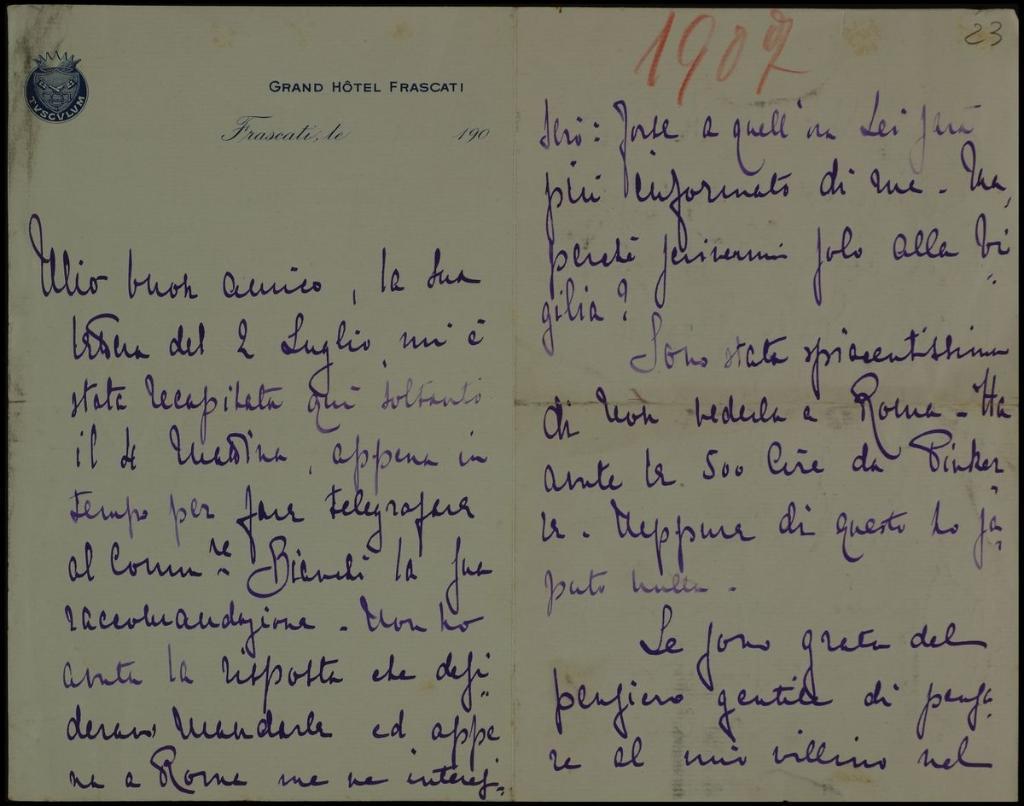 TVSCVLVM
GRAND HÔTEL FRASCATI
Frascati, le 190
Mio buon amico, la sua
lettera del 2 Luglio mi è
stata recapitata qui soltanto
il 4 mattina, appena in
tempo per fare telegrafare
al Comm.re Bianchi la sua
raccomandazione. Non ho
avuta la risposta che desi
deravo mandarle ed appe
na a Roma me ne interes
1907
23
serò: forse a quell'ora Lei sarà
più informato di me. Ma,
perché scrivermi solo alla vi
gilia?
Sono stata spiacentissima
di non vederla a Roma. Ha
avute le 500 lire da Pinker
le. Neppure di questo ho sa
puto nulla.
Le sono grata del
pensiero gentile di pensa
re al mio villino nel